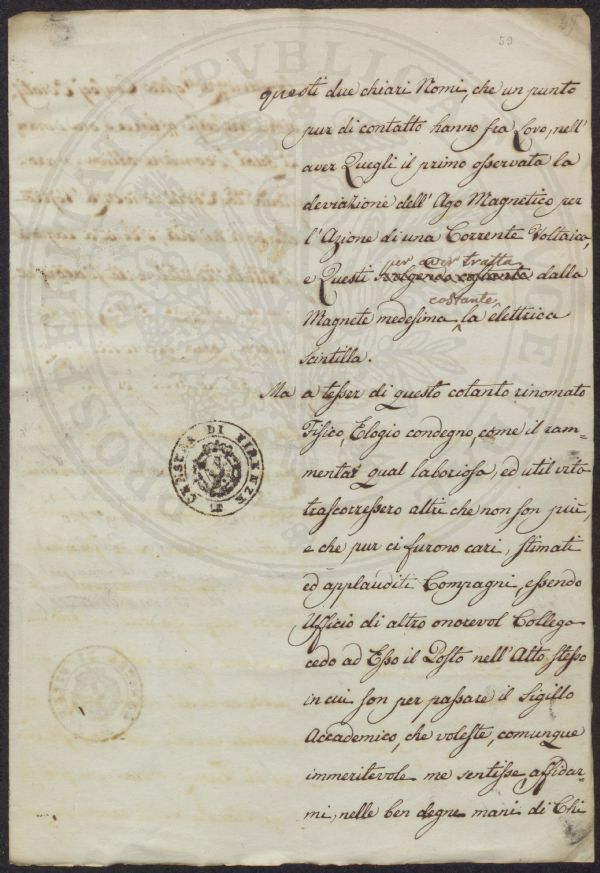 59
questi due chiari Nomi, che un punto
pur di contatto hanno fra Loro, nell'
aver Quegli il primo osservata la
deviazione dell'Ago Magnetico per
l'Azione di una Corrente Voltaica,
per aver tratta
e Questi svolgendo costante dalla
costante
Magnete medesima la elettrica
scintilla.
Ma a tesser di questo cotanto rinomato
Fisico, Elogio condegno, come il ram-
mentar qual laboriosa, ed util vita
trascorressero altri che non son più,
e che pur ci furono cari, stimati
ed applauditi Compagni, essendo
Ufficio di altro onorevol Collega
cedo ad Esso il Posto nell'Atto stesso
in cui son per passare il Sigillo
Accademico, che voleste, comunque
immeritevole me sentisse, affidar-
mi, nelle ben degne mani di Chi
DI FIRENZE